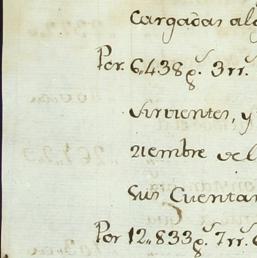 Cargadas alg
Por 6,438 g.s 3 rr.s
Sirvientes, y
viembre del
Sus Cuentas
Por 12,,833 g.s 7 rr.s